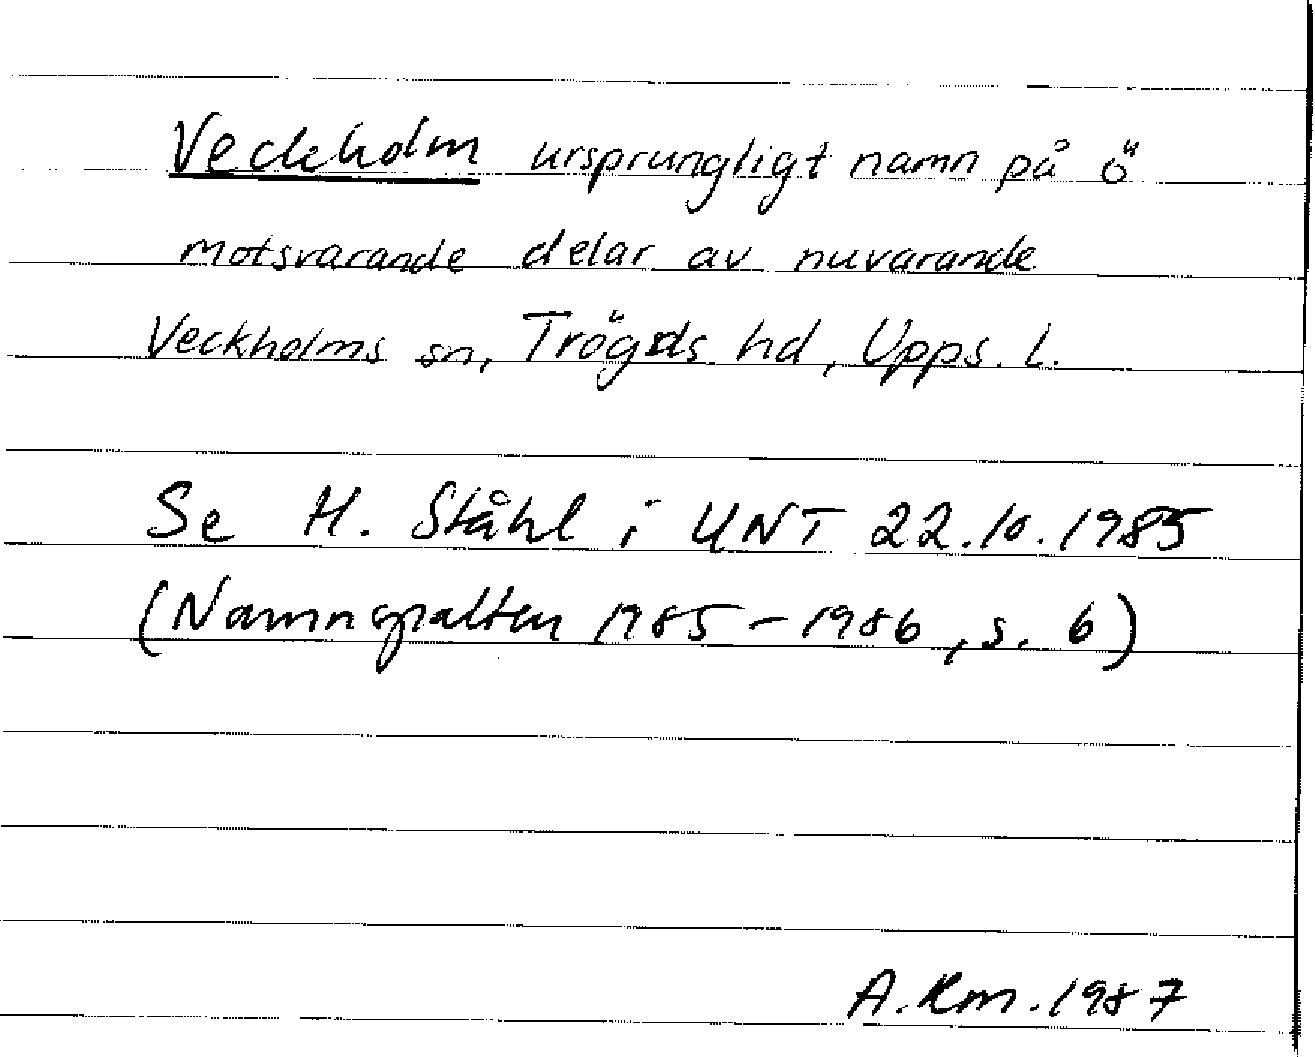 Veckholm ursprungligt namn på ö
motsvarande delar av nuvarande
Veckholms sn, Trögds hd, Upps. l.
Se H. Ståhl i UNT 22.10.1985
(Namnspalten 1985-1986, s. 6)
A.Rm. 1987